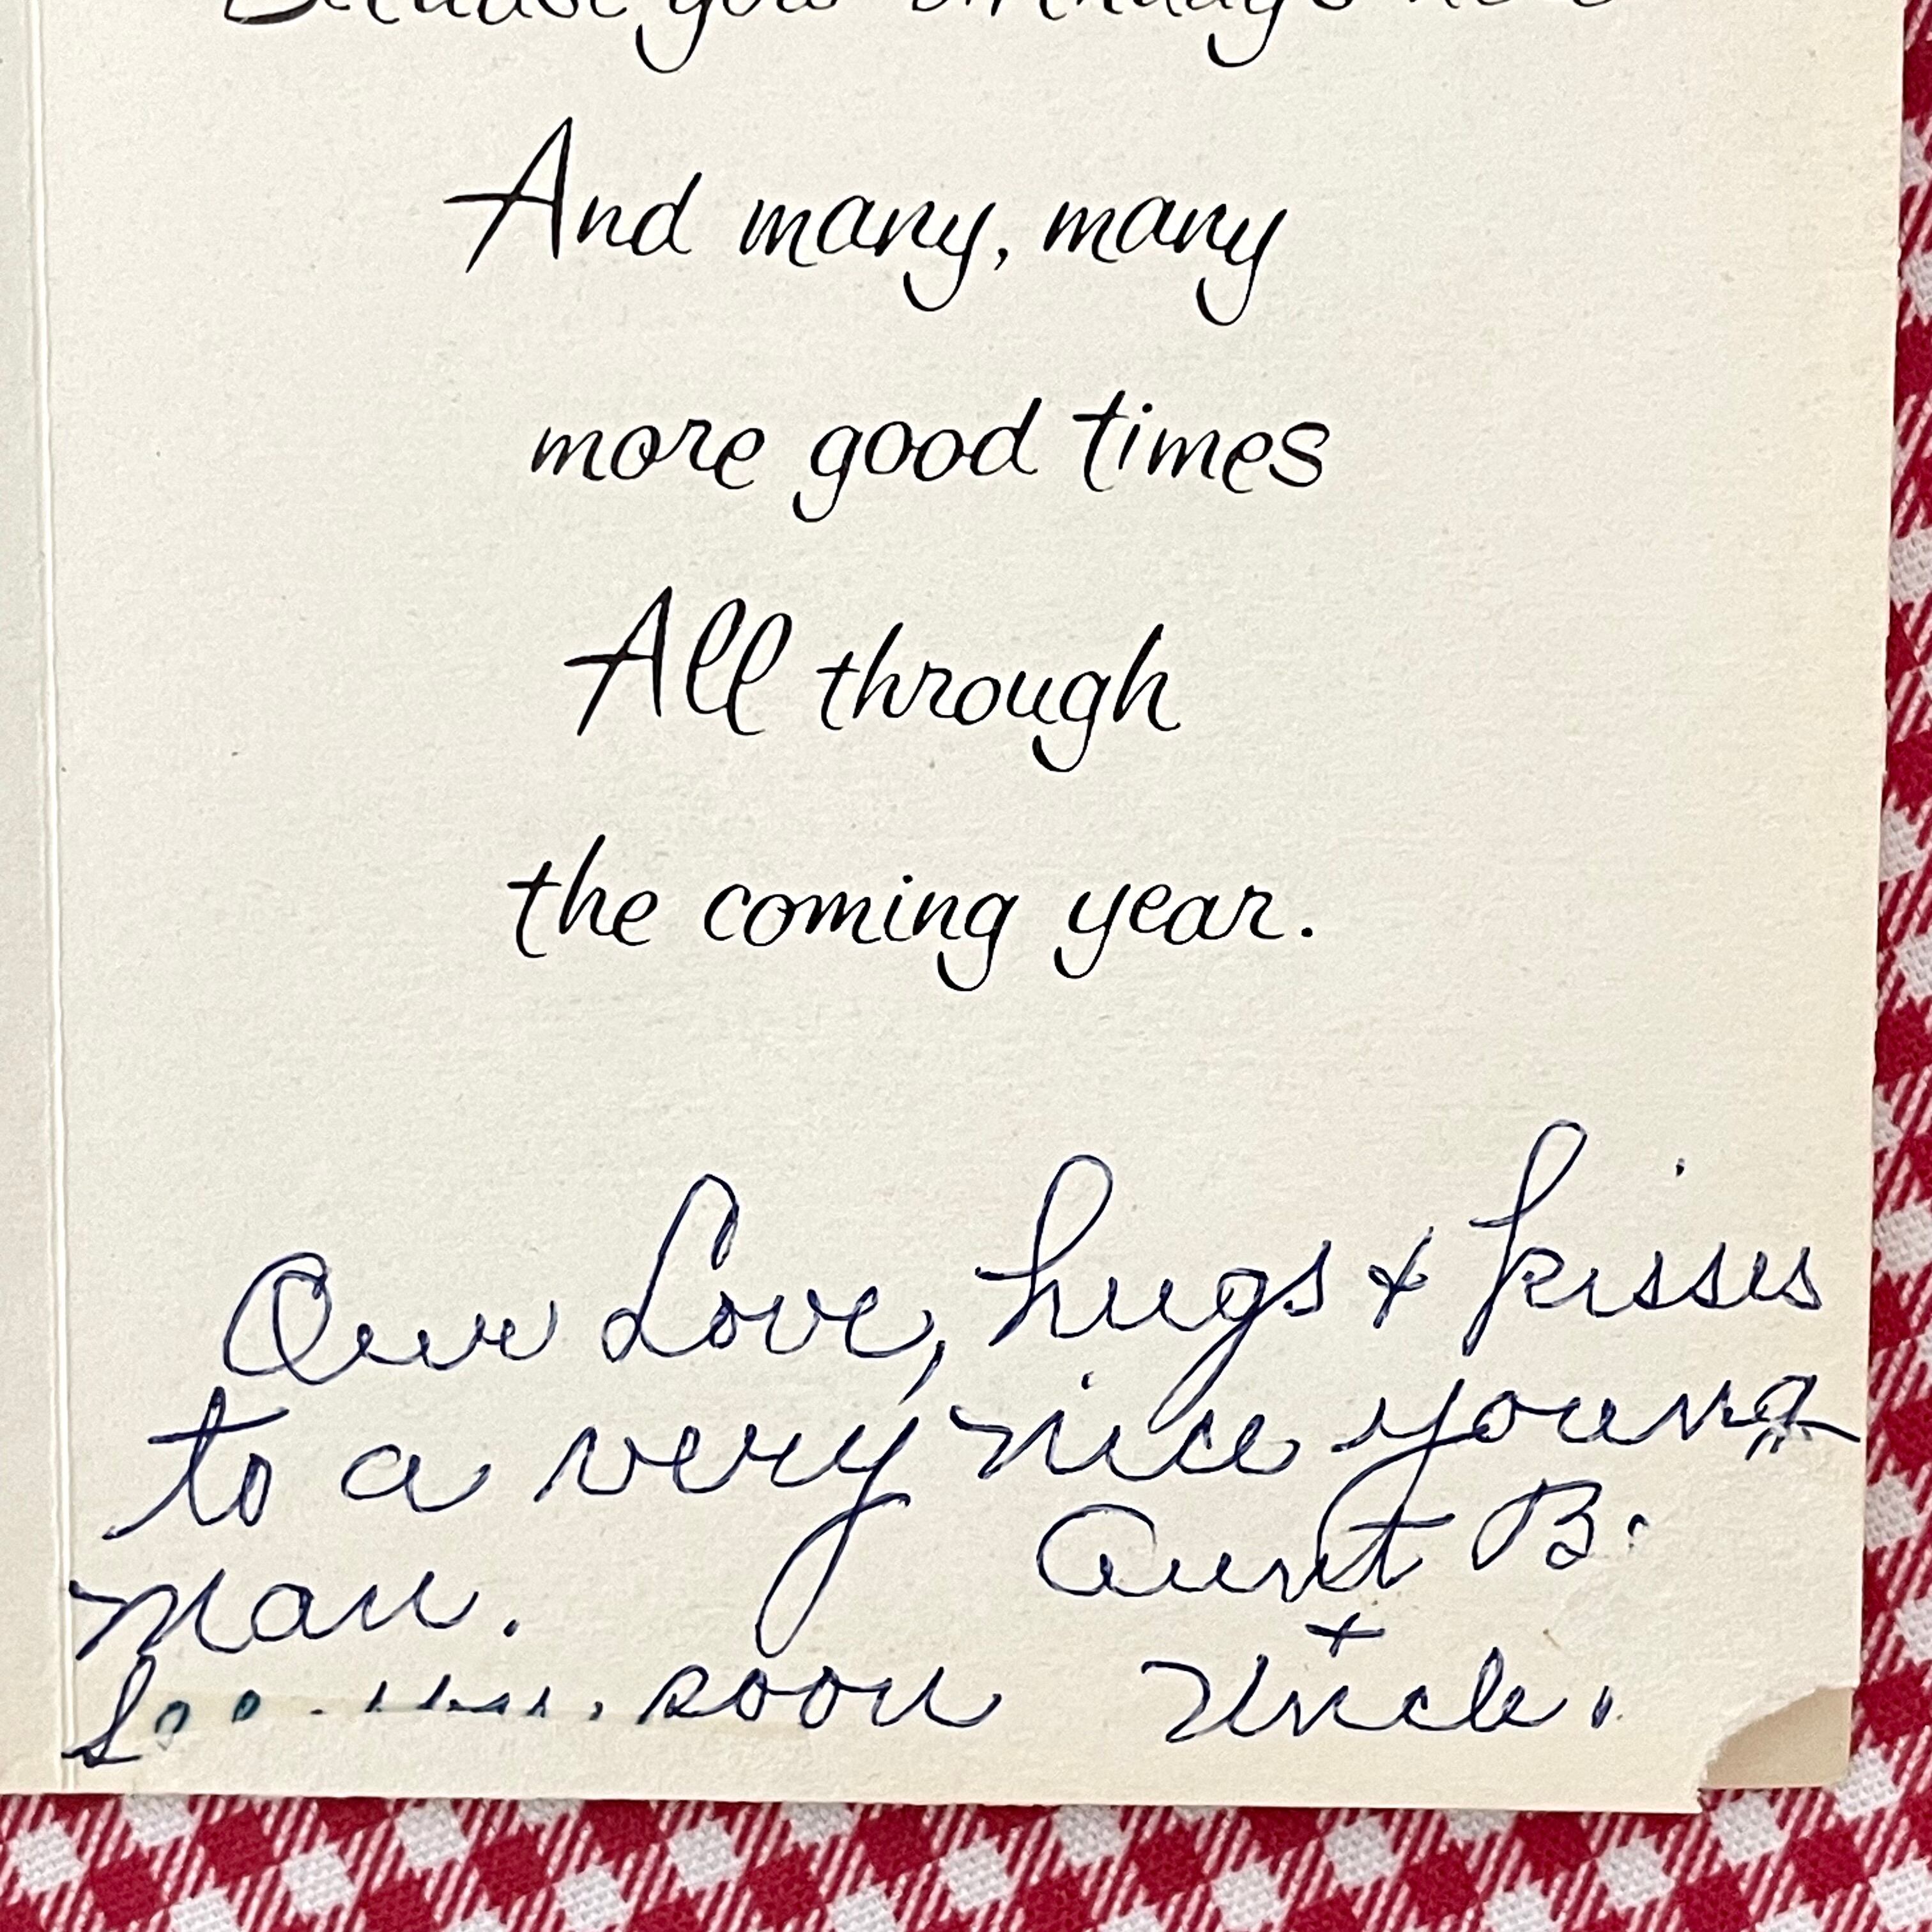 Because your birthday's here
And many, many
more good times
All through
the coming year.
Our Love, hugs + kisses
to a very nice young
man.
Aunt B.
+
soon Uncle.